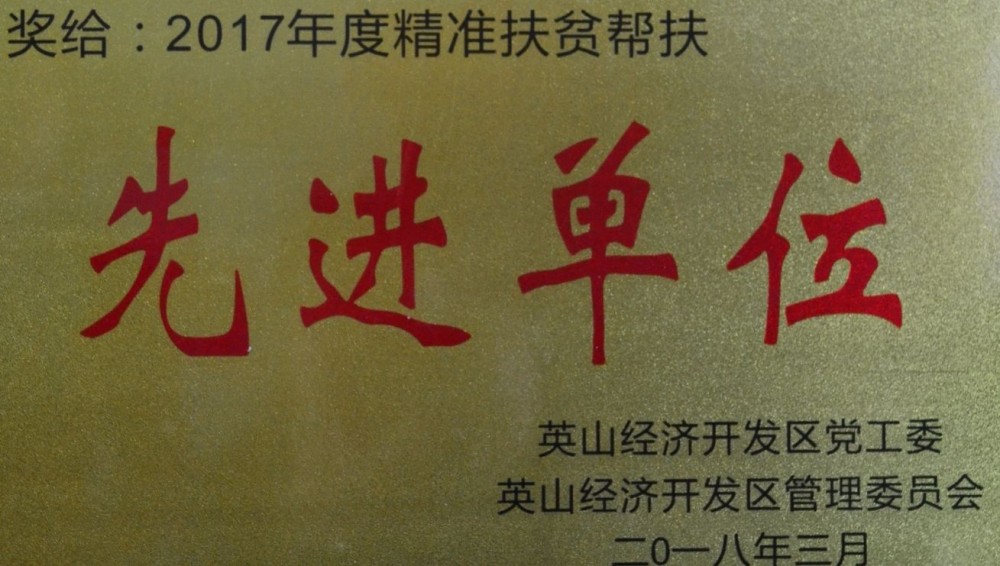 奖给：2017年度精准扶贫帮扶
先进单位
英山经济开发区党工委
英山经济开发区管理委员会
二0一八年三月